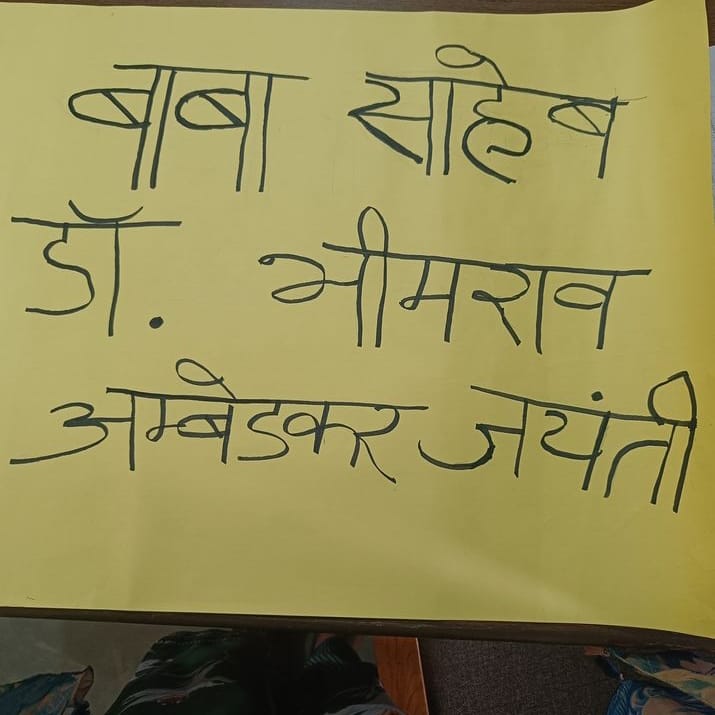 बाबा साहेब
डॉ. भीमराव
अम्बेडकर जयंती